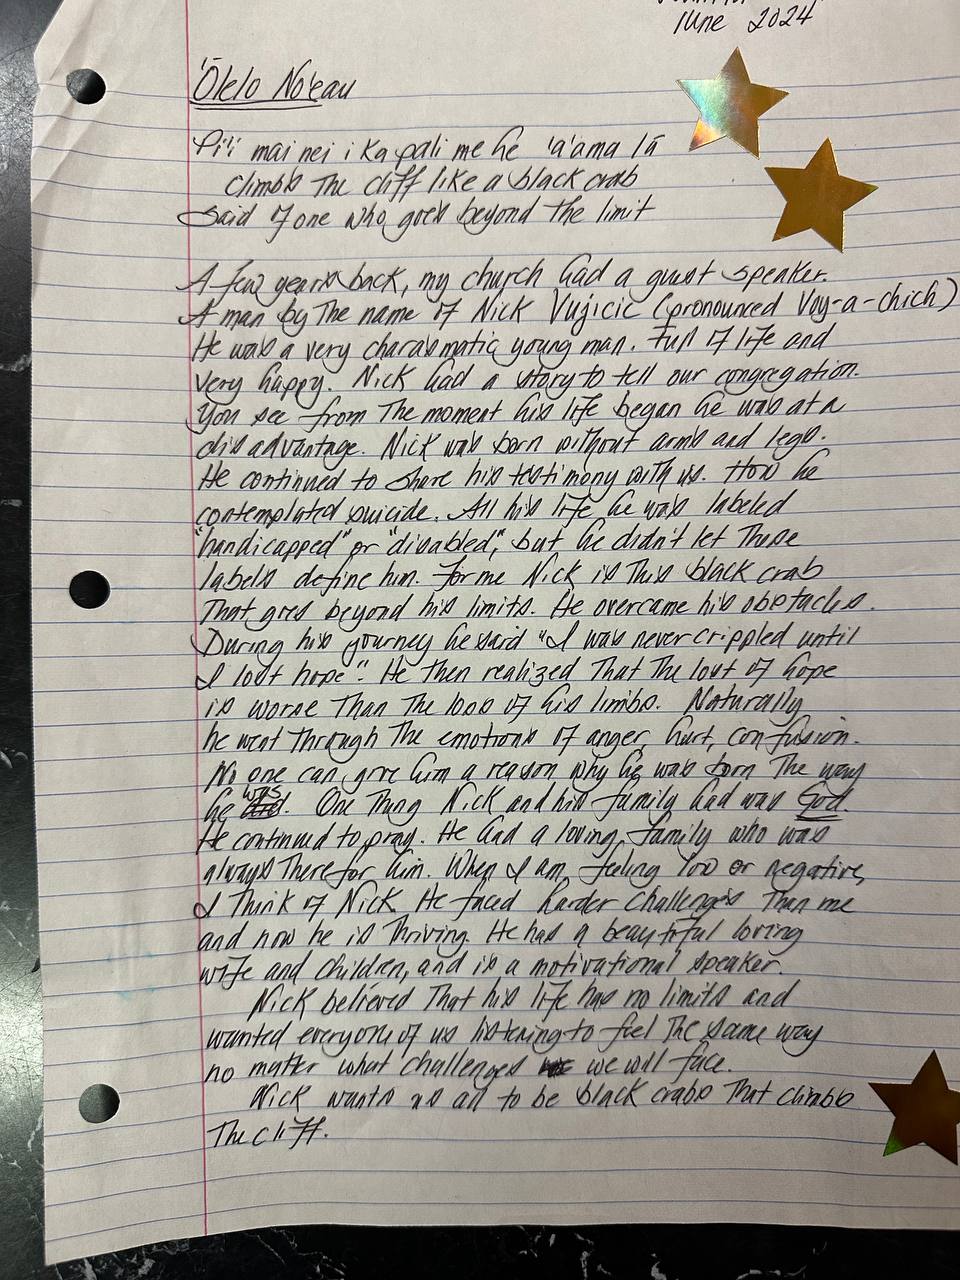 June 2024
'Ōlelo No'eau
Pi'i mai nei i ka pali me he 'a'ama lā
climbs the cliff like a black crab
Said of one who goes beyond the limit
A few years back, my church had a guest speaker.
A man by the name of Nick Vujicic (pronounced Voy-a-chich)
He was a very charasmatic young man. Full of life and
very happy. Nick had a story to tell our congregation.
You see from the moment his life began he was at a
disadvantage. Nick was born without arms and legs.
He continued to share his testimony with us. How he
contemplated suicide. All his life he was labeled
"handicapped" or "disabled," but he didn't let those
labels define him. For me Nick is this black crab
That goes beyond his limits. He overcame his obstacles.
During his journey he said "I was never crippled until
I lost hope". He then realized that the lost of hope
is worse than the loss of his limbs. Naturally
he went through the emotions of anger, hurt, confusion.
No one can give him a reason why he was born the way
he was. One thing Nick and his family had was God.
He continued to pray. He had a loving family who was
always there for him. When I am feeling low or negative,
I think of Nick. He faced harder challenges than me
and now he is thriving. He has a beautiful loving
wife and children, and is a motivational speaker.
Nick believed that his life has no limits and
wanted everyone of us listening to feel the same way
no matter what challenges we will face.
Nick wants us all to be black crabs that climbs
the cliff.